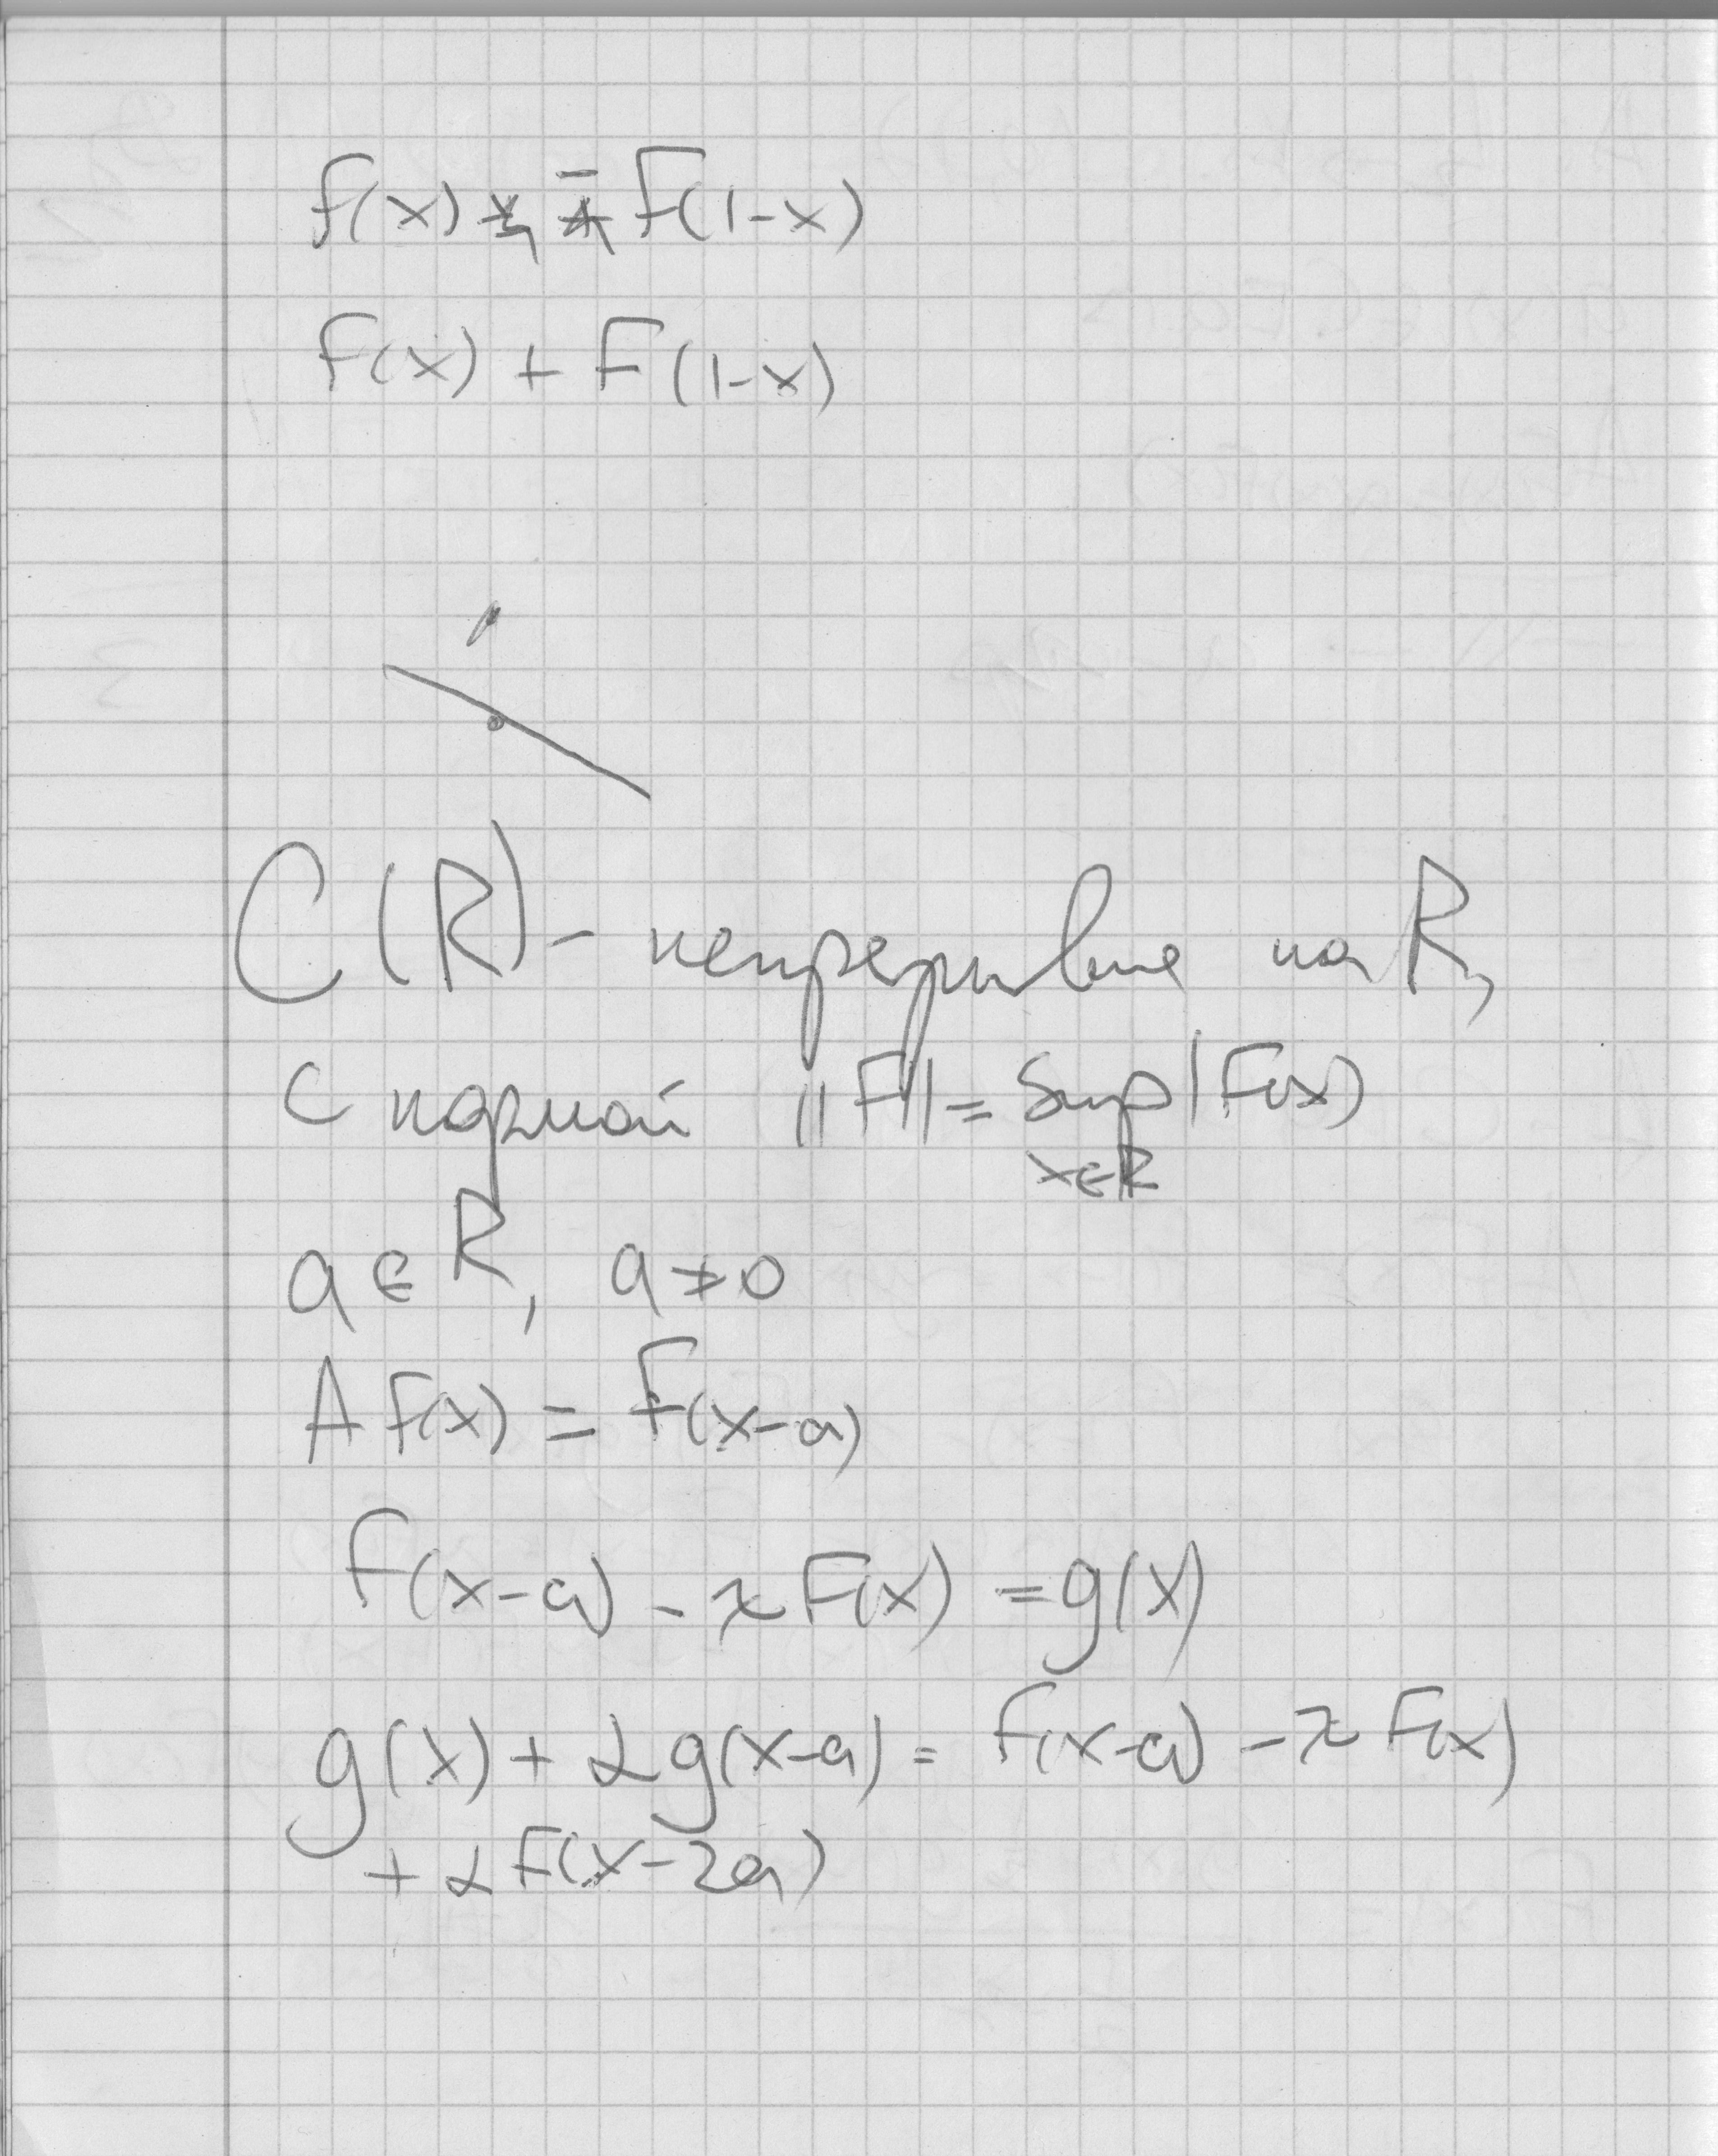 f(x) = F(1-x)
F(x) + F(1-x)
C(R) - непрерывные на R,
с нормой ||F|| = Sup |F(x)
x∈R
a ∈ R, a ≠ 0
A f(x) = F(x-a)
F(x-a) - λF(x) = g(x)
g(x) + αg(x-a) = F(x-a) - λF(x)
+ αF(x-2a)